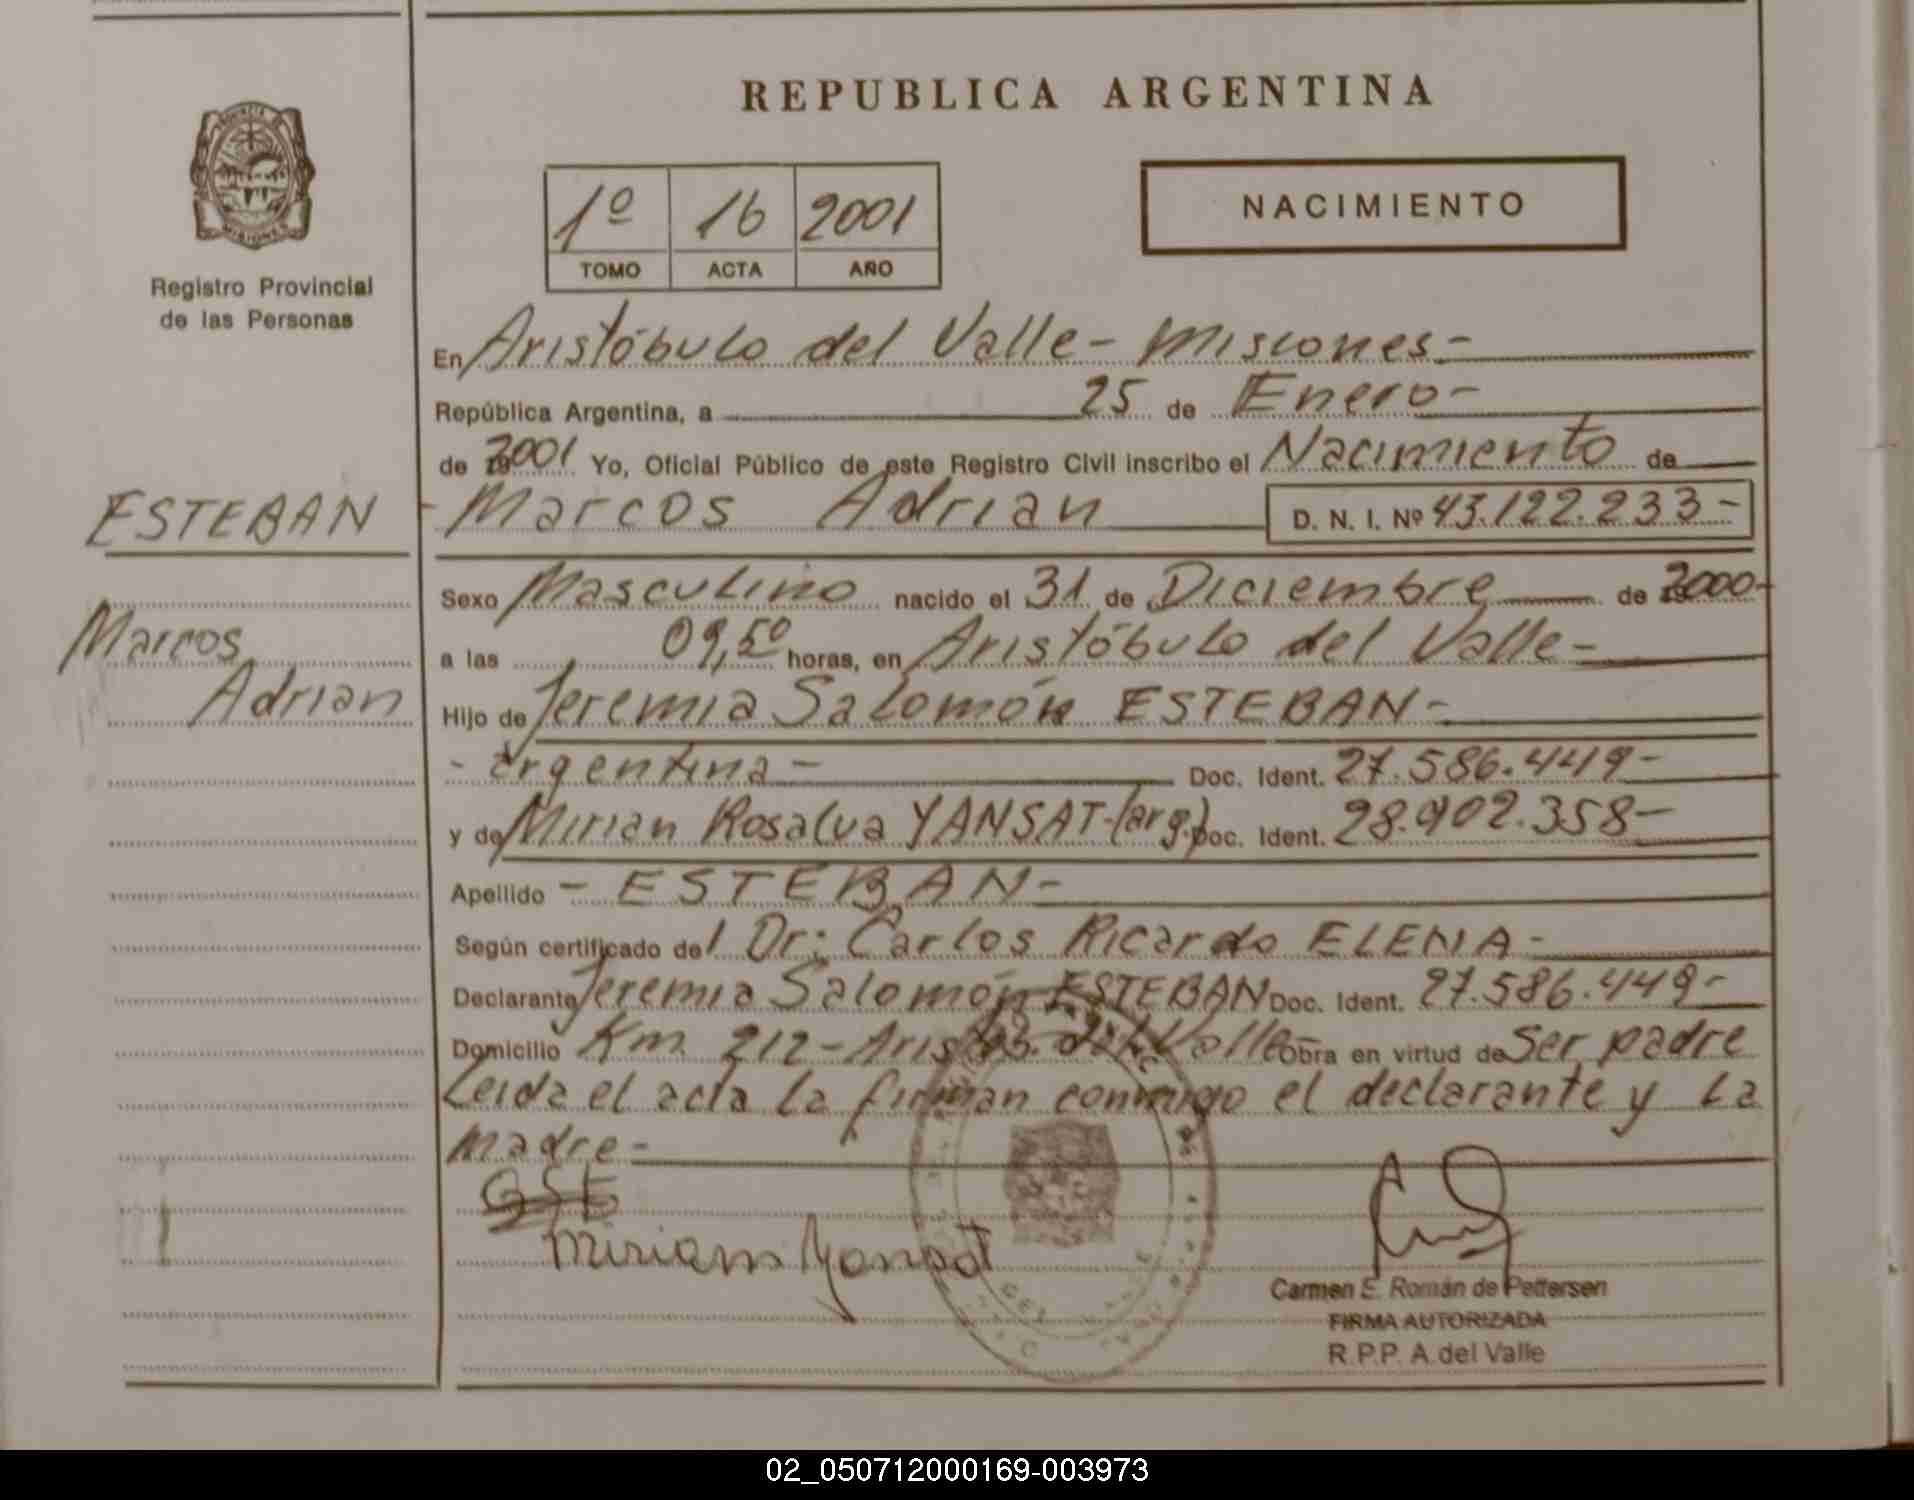 REPUBLICA ARGENTINA
MISIONES
Registro Provincial
de las Personas
1º 16 2001
TOMO ACTA AÑO
NACIMIENTO
En Aristóbulo del Valle - Misiones -
República Argentina, a 25 de Enero -
de 2001 Yo, Oficial Público de este Registro Civil inscribo el Nacimiento de
ESTEBAN
- Marcos Adrian D. N. I. Nº 43.122.233 -
Marcos
Adrian
Sexo Masculino nacido el 31 de Diciembre de 2000 -
a las 09,50 horas, en Aristóbulo del Valle -
Hijo de Jeremia Salomón ESTEBAN -
- argentina - Doc. Ident. 27.586.449 -
y de Mirian Rosalva YANSAT - (arg.) Doc. Ident. 28.902.358 -
Apellido - ESTEBAN -
Según certificado del Dr: Carlos Ricardo ELENA -
Declarante Jeremia Salomón ESTEBAN Doc. Ident. 27.586.449 -
Domicilio Km 212 - Aristób. del Valle - Obra en virtud de Ser padre
Leida el acta la firman conmigo el declarante y La
madre -
Miriam Yansat
Carmen E. Román de Pettersen
FIRMA AUTORIZADA
R.P.P. A. del Valle
02_050712000169-003973